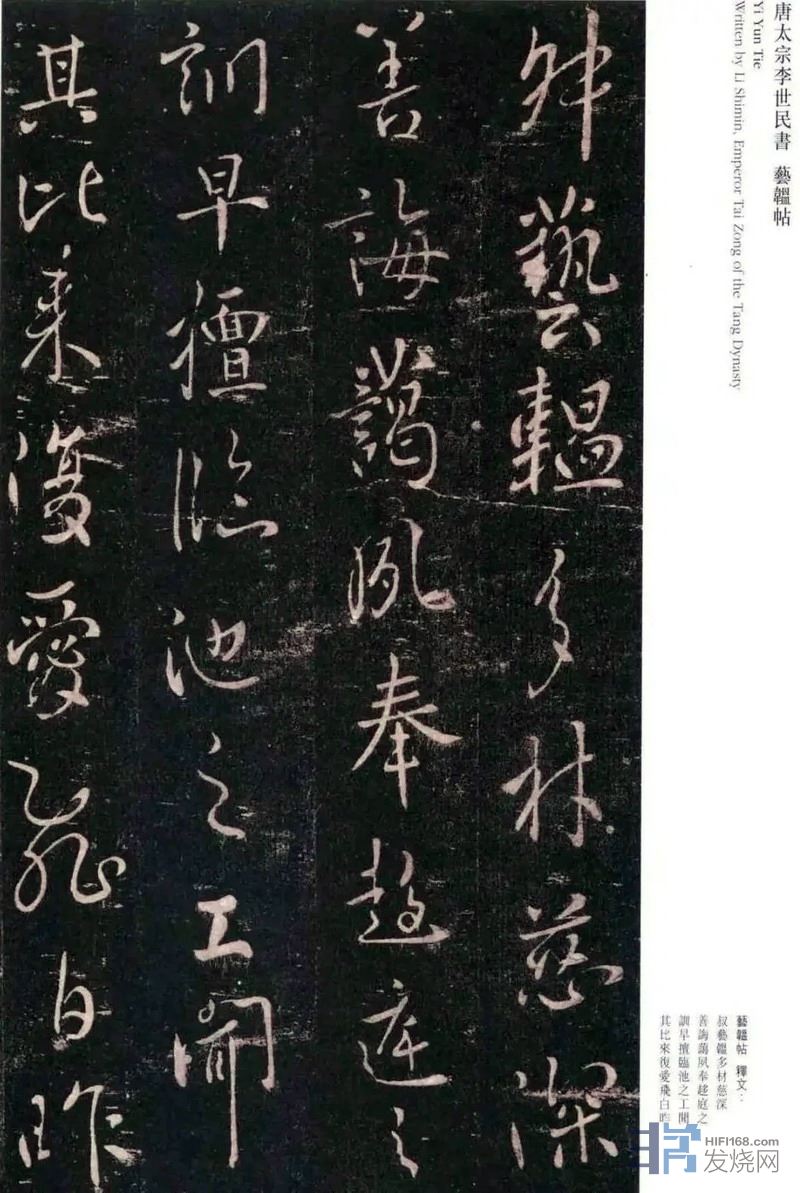 唐太宗李世民書 藝韞帖
Yi Yun Tie
Written by Li Shimin, Emperor Tai Zong of the Tang Dynasty
叔藝韞多材慈深
善誨藹夙奉趍庭之
訓早擅臨池之工閒
其比来復愛飛白昨
藝韞帖 釋文:
叔藝韞多材慈深
善誨藹夙奉趍庭之
訓早擅臨池之工閒
其比來復愛飛白昨
HIFI168.com
发烧网